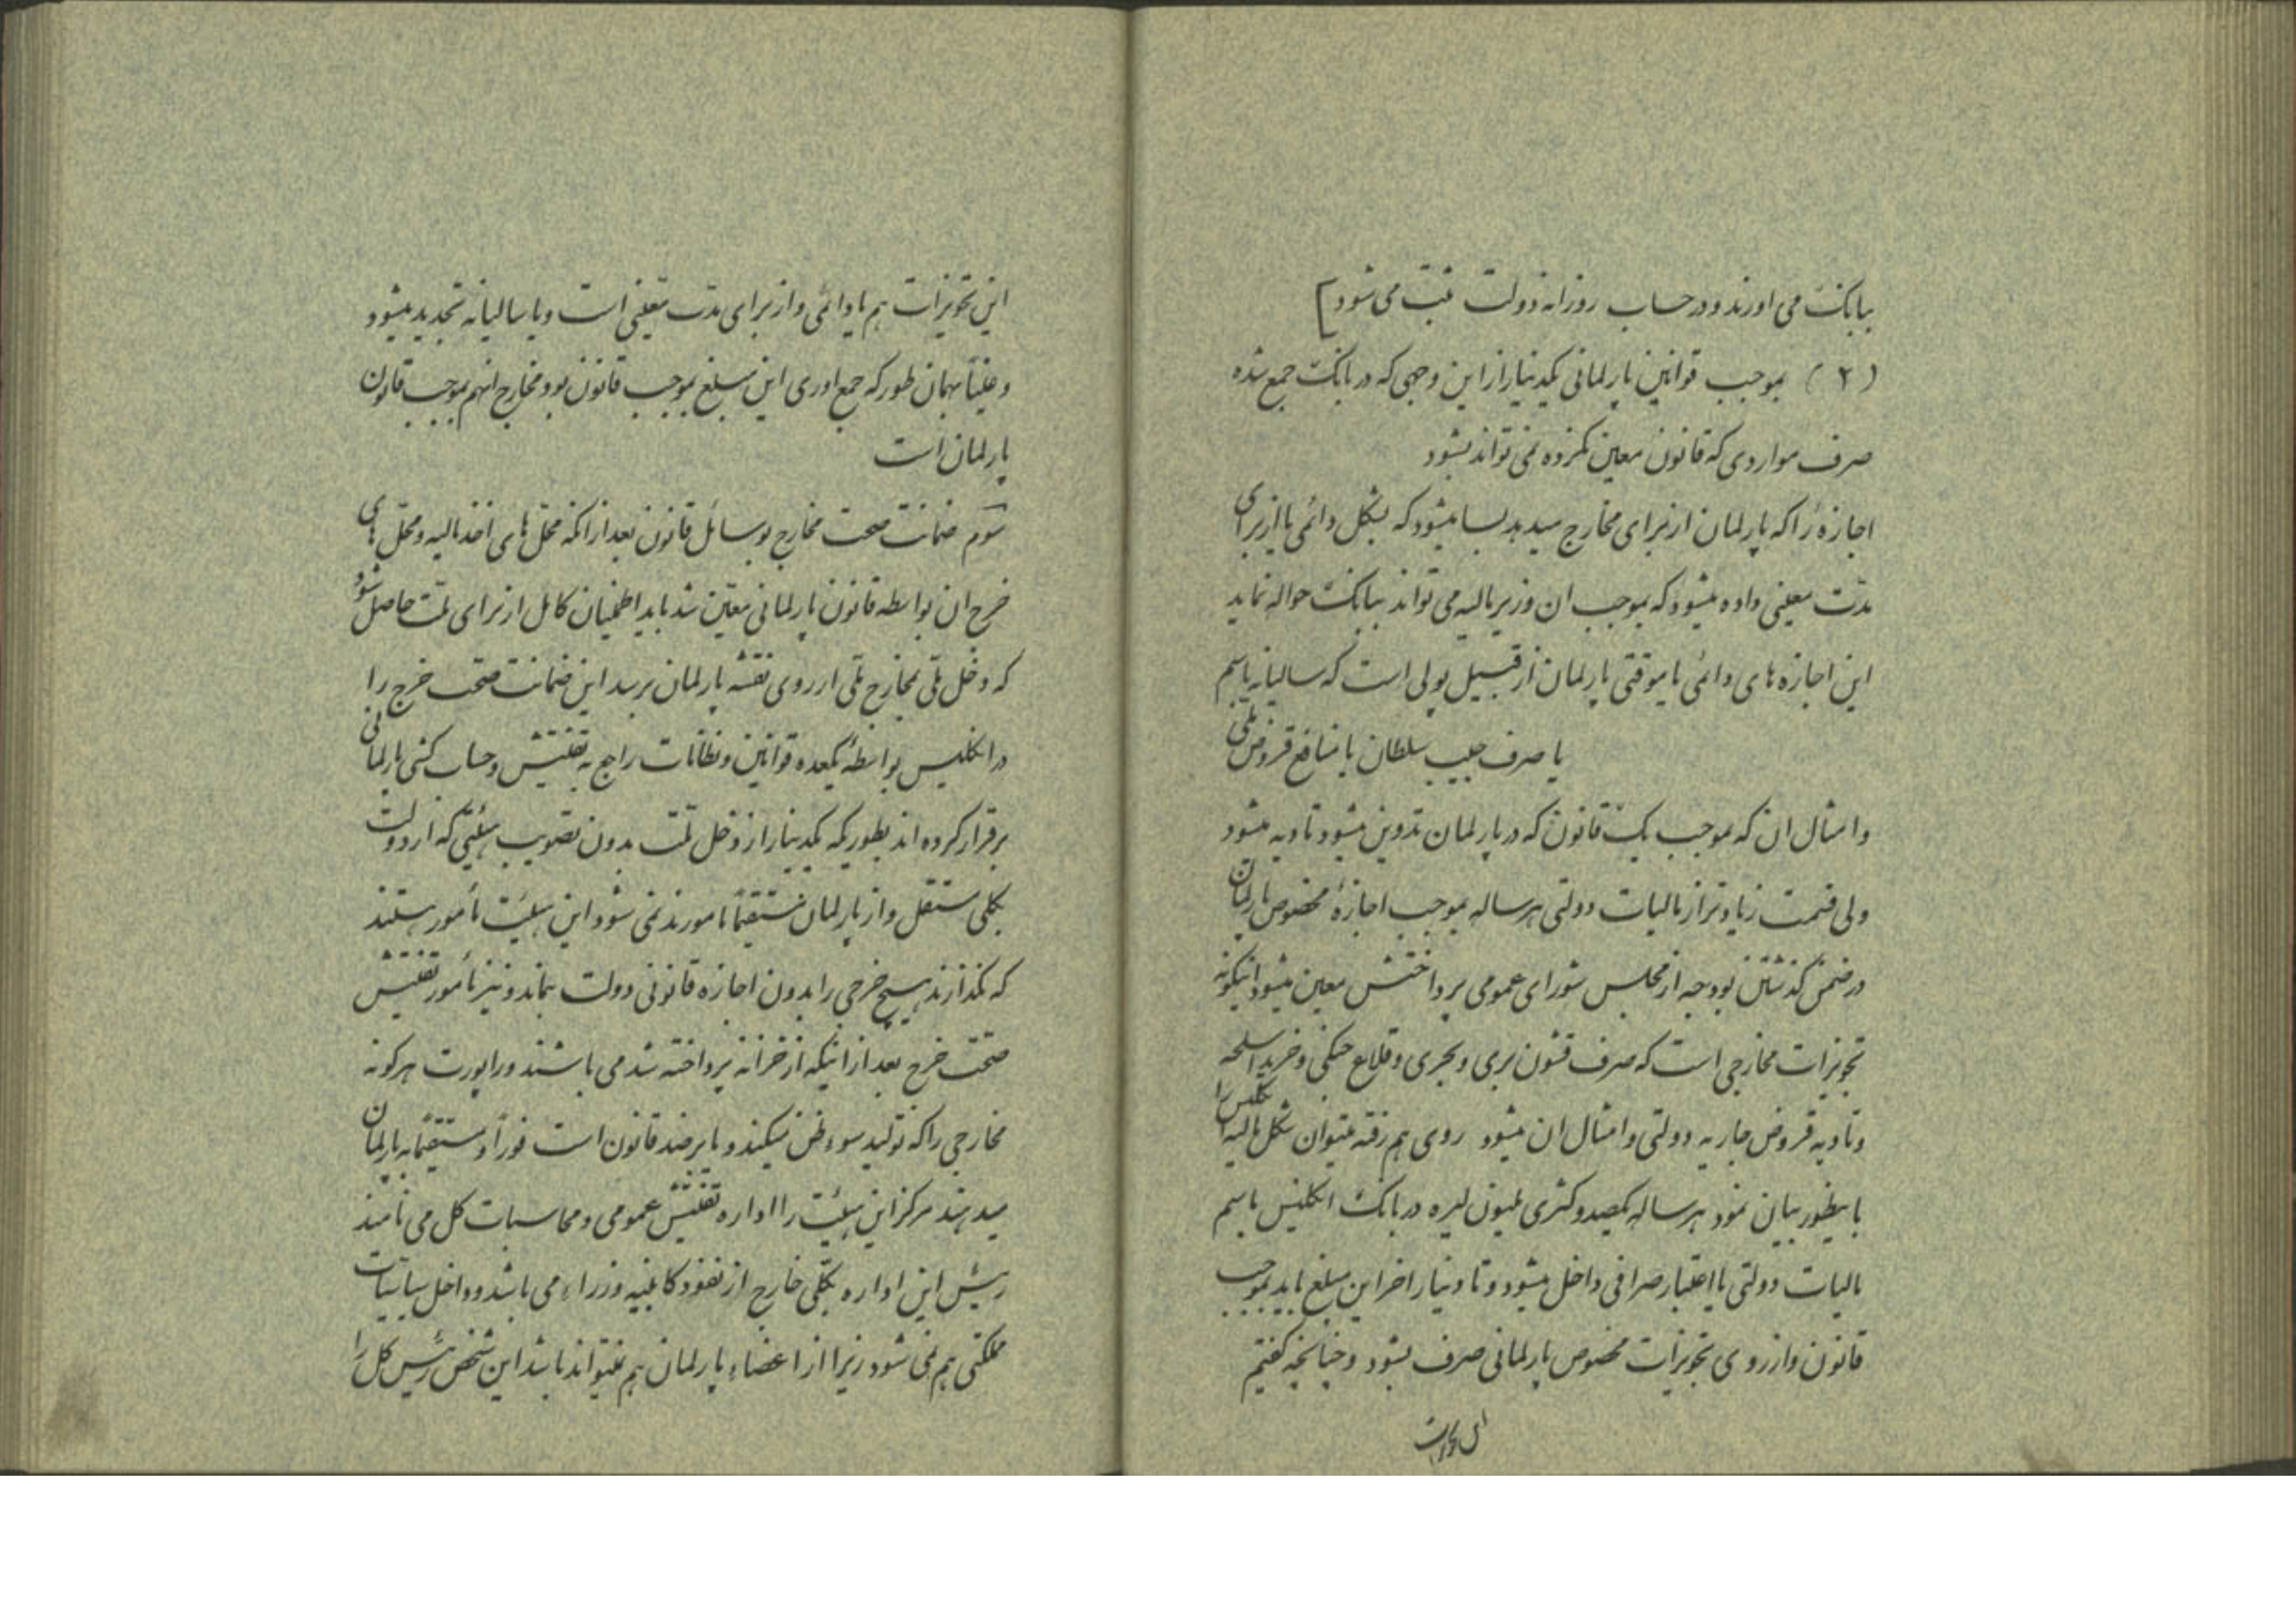 ببانک می اورند و در حساب روزانه دولت ثبت می شود]
(۲) بموجب قوانین پارلمانی یکدینار از این وجهی که در بانک جمع شده
صرف مواردی که قانون معین نکرده نمی تواند بشود
اجازهٔ را که پارلمان از برای مخارج میدهد بسا میشود که بشکل دائمی یا از برای
مدّت معینی داده میشود که بموجب ان وزیر مالیه می تواند ببانک حواله نماید
این اجازه های دائمی یا موقتی پارلمان از قبیل پولی است که سالیانه باسم
یا صرف جیب سلطان یا منافع قروض ملّی
و امثال ان که بموجب یک قانون که در پارلمان تدوین میشود تادیه میشود
ولی قسمت زیادتر از مالیات دولتی هرساله بموجب اجازهٔ مخصوص پارلمان
در ضمن گذشتن بودجه از مجلس شورای عمومی پرداختنش معین میشود اینگونه
تجویزات مخارجی است که صرف قشون بری و بحری و قلاع جنگی و خرید اسلحه
و تادیه قروض جاریه دولتی و امثال ان میشود روی هم رفته میتوان شکل مالیه انگلیس را
باینطور بیان نمود هرساله یکصد و کثری ملیون لیره در بانک انگلیس باسم
مالیات دولتی یا اعتبار صرافی داخل میشود و تا دینار اخر این مبلغ باید بموجب
قانون و از روی تجویزات مخصوص پارلمانی صرف بشود و چنانچه گفتیم
این تجویزات
این تجویزات هم یا دائمی و از برای مدّت معینی است و یا سالیانه تجدید میشود
و عیناً بهمان طور که جمع اوری این مبلغ بموجب قانون بود مخارج انهم بموجب قانون
پارلمان است
سوّم ضمانت صحت مخارج بوسائل قانون بعد از انکه محلّ های اخذ مالیه و محلّ های
خرج ان بواسطه قانون پارلمانی معیّن شد باید اطمینان کامل از برای ملت حاصل شود
که دخل ملّی بمخارج ملّی از روی نقشه پارلمان برسد این ضمانت صحّت خرج را
در انگلیس بواسطهٔ یکعده قوانین و نظامات راجع به تفتیش و حساب کشی پارلمانی
برقرار کرده اند بطوریکه یکدینار از دخل ملّت بدون تصویب هیئتی که از دولت
بکلی مستقل و از پارلمان مستقیماً مامورند نمی شود این هیئت مأمور هستند
که نگذارند هیچ خرجی را بدون اجازه قانونی دولت بنماید و نیز مأمور تفتیش
صحّت خرج بعد از اینکه از خزانه پرداخته شد می باشند و راپورت هرگونه
مخارجی را که تولید سوء ظن میکند و یا برضد قانون است فوراً و مستقیماً به پارلمان
میدهند مرکز این هیئت را اداره تفتیش عمومی و محاسبات کل می نامند
رئیس این اداره بکلّی خارج از نفوذ کابینه وزراء می باشد و داخل سیاسیات
مملکتی هم نمی شود زیرا از اعضاء پارلمان هم نمیتواند باشد این شخص رئیس کل را